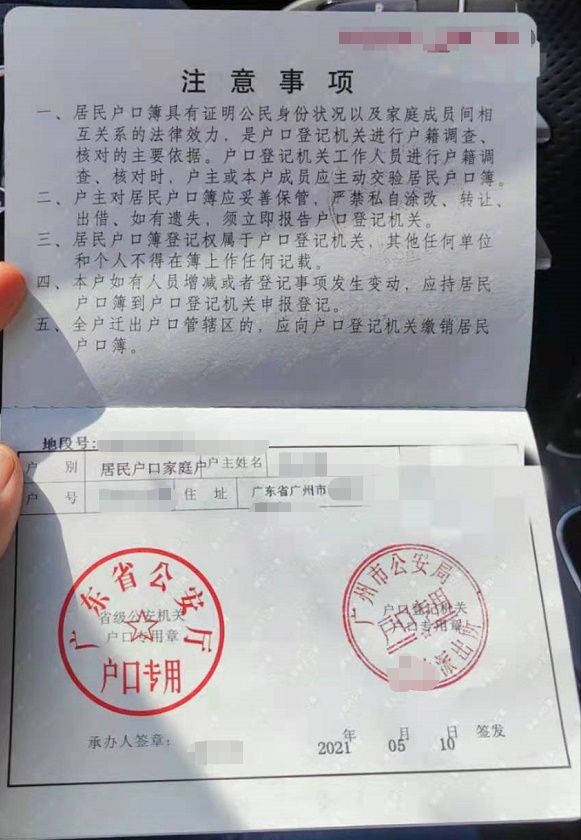 注意事项
一、居民户口簿具有证明公民身份状况以及家庭成员间相
互关系的法律效力，是户口登记机关进行户籍调查、
核对的主要依据。户口登记机关工作人员进行户籍调
查、核对时，户主或本户成员应主动交验居民户口簿。
二、户主对居民户口簿应妥善保管，严禁私自涂改、转让、
出借、如有遗失，须立即报告户口登记机关。
三、居民户口簿登记权属于户口登记机关，其他任何单位
和个人不得在簿上作任何记载。
四、本户如有人员增减或者登记事项发生变动，应持居民
户口簿到户口登记机关申报登记。
五、全户迁出户口管辖区的，应向户口登记机关缴销居民
户口簿。
地段号:
户 别 居民户口家庭户 户主姓名
户 号 住 址 广东省广州市
广东省公安厅
省级公安机关
户口专用章
户口专用
广州市公安局
户口登记机关
户口专用章
户口专用
派出所
承办人签章：
2021年05月10日 签发